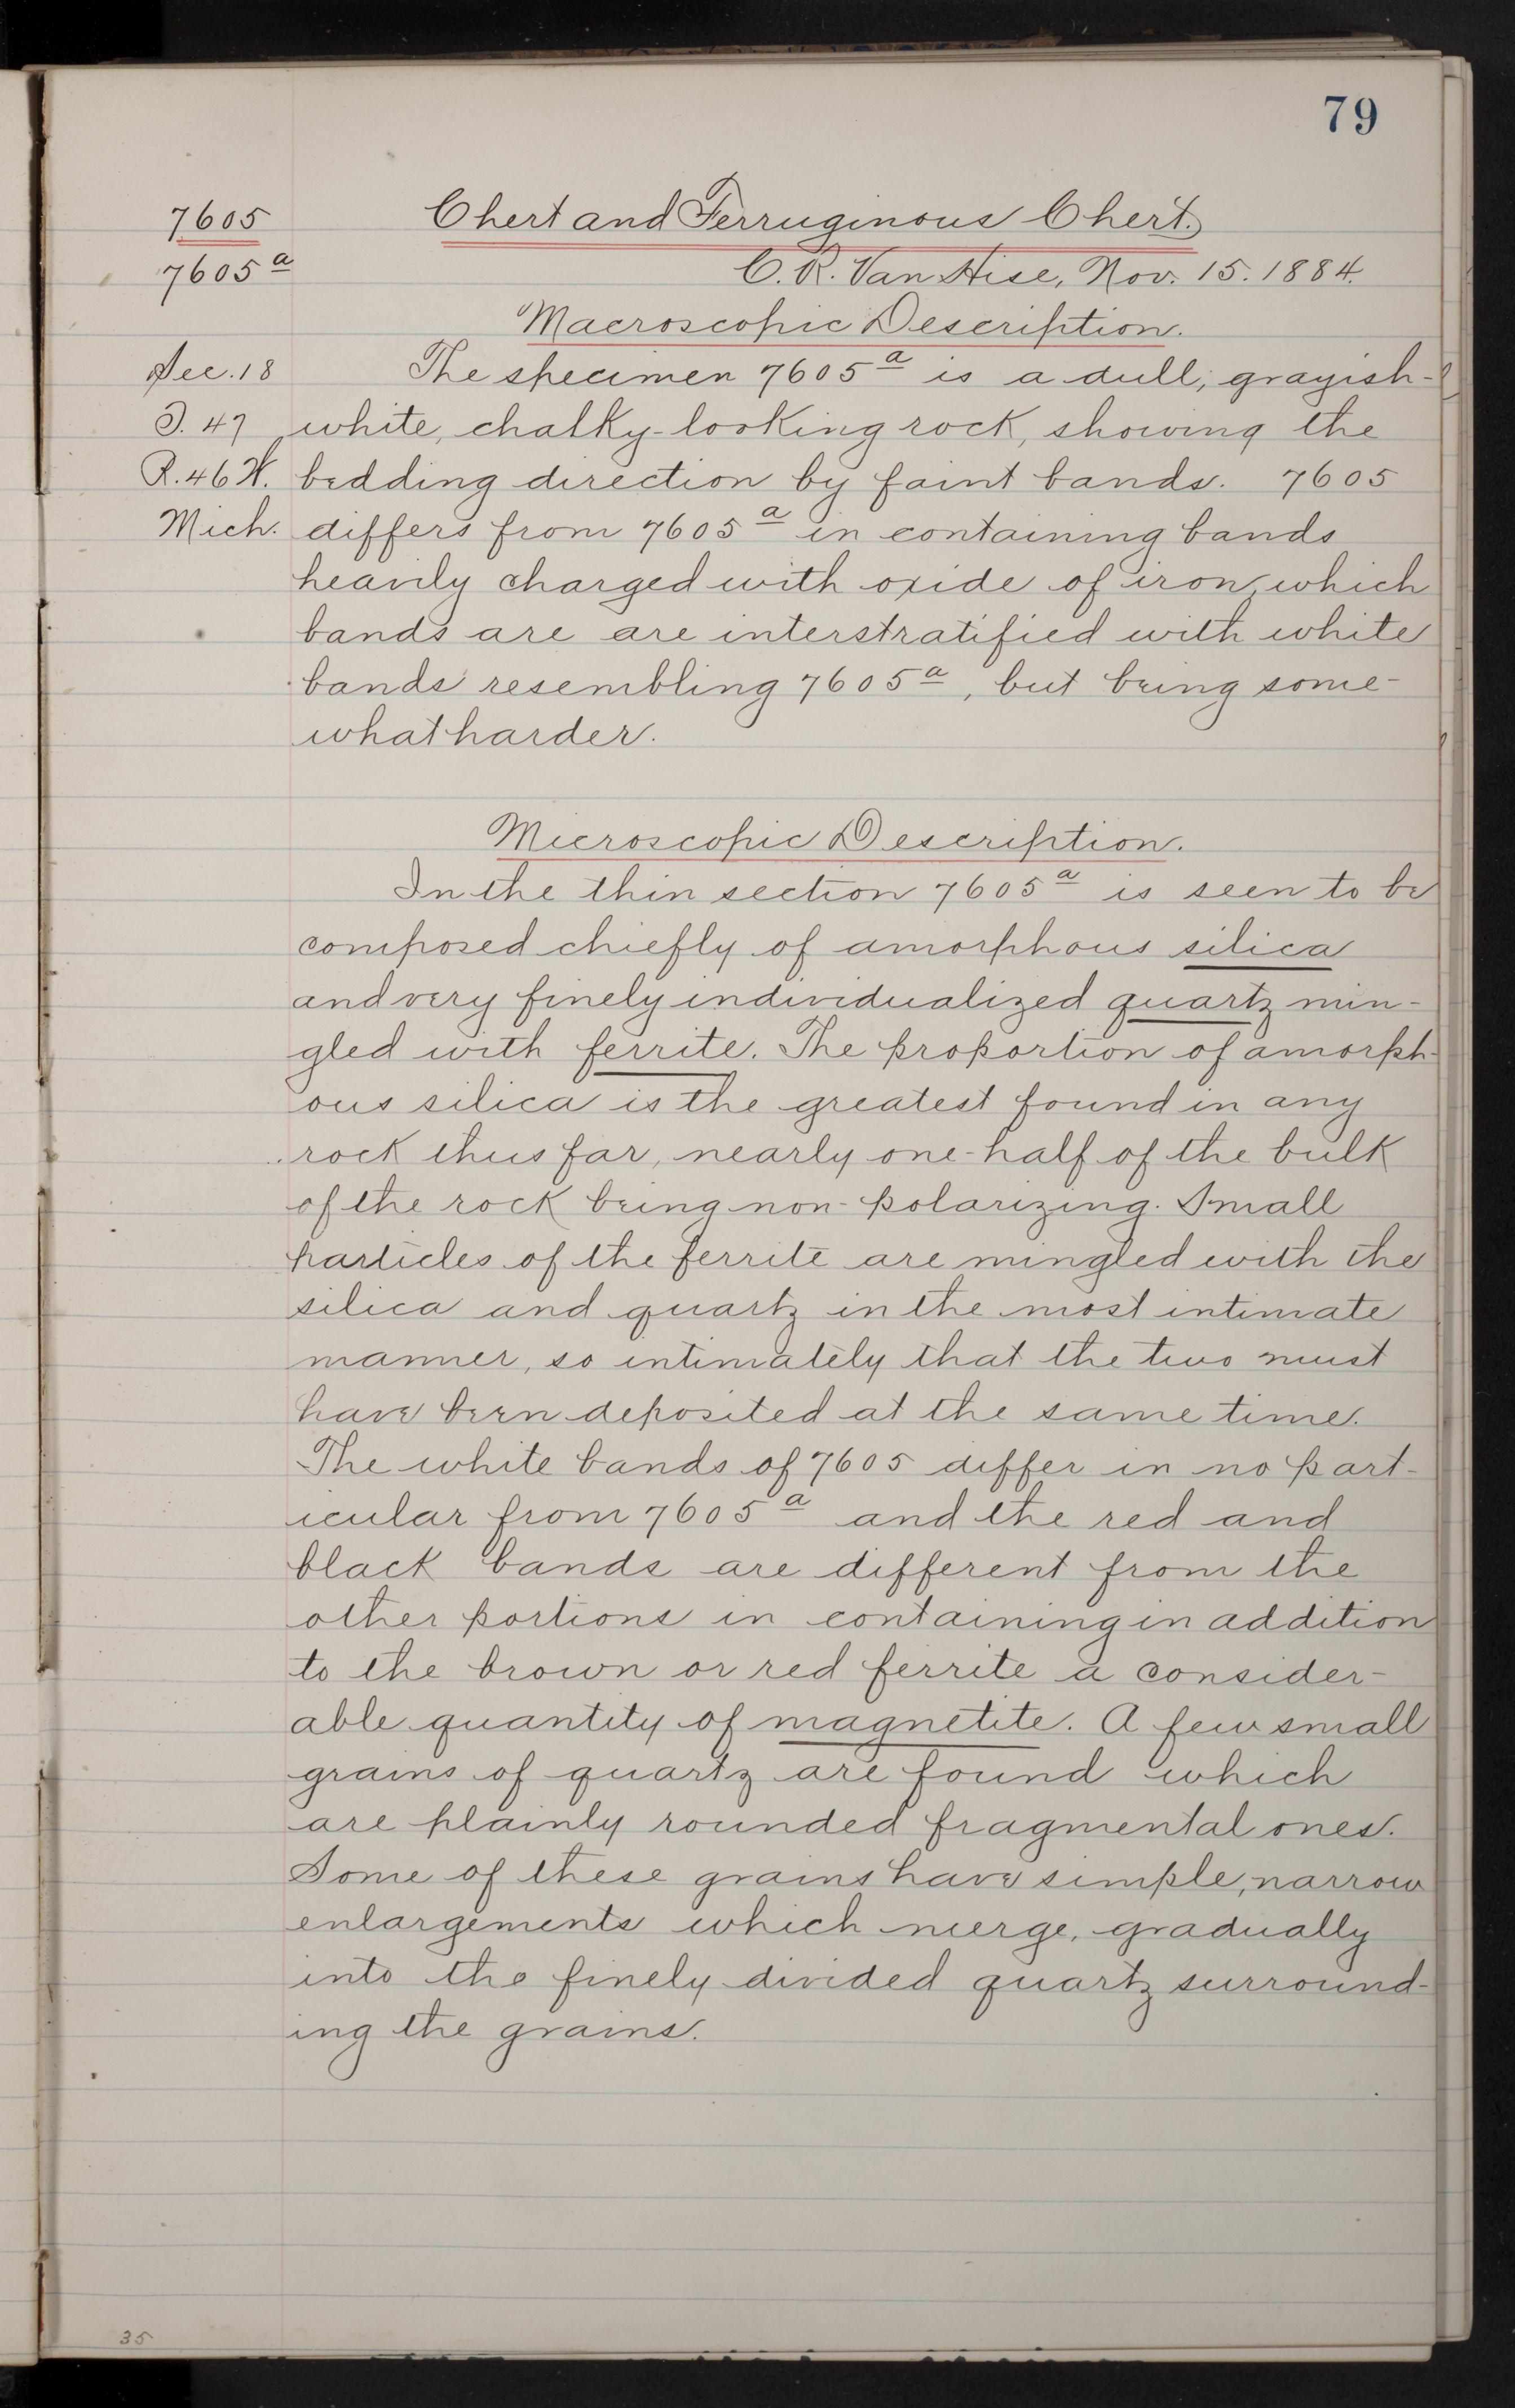 79
7605
Chert and Ferruginous Chert.
7605a
C. R. Van Hise, Nov. 15. 1884.
Macroscopic Description.
Sec. 18
The specimen 7605a is a dull, grayish-
T. 47
white, chalky-looking rock, showing the
R. 46 W.
bedding direction by faint bands. 7605
Mich.
differs from 7605a in containing bands
heavily charged with oxide of iron, which
bands are are interstratified with white
bands resembling 7605a, but being some-
what harder.
Microscopic Description.
In the thin section 7605a is seen to be
composed chiefly of amorphous silica
and very finely individualized quartz min-
gled with ferrite. The proportion of amorph-
ous silica is the greatest found in any
rock thus far, nearly one-half of the bulk
of the rock being non-polarizing. Small
particles of the ferrite are mingled with the
silica and quartz in the most intimate
manner, so intimately that the two must
have been deposited at the same time.
The white bands of 7605 differ in no part-
icular from 7605a and the red and
black bands are different from the
other portions in containing in addition
to the brown or red ferrite a consider-
able quantity of magnetite. A few small
grains of quartz are found which
are plainly rounded fragmental ones.
Some of these grains have simple, narrow
enlargements which merge, gradually
into the finely divided quartz surround-
ing the grains.
35